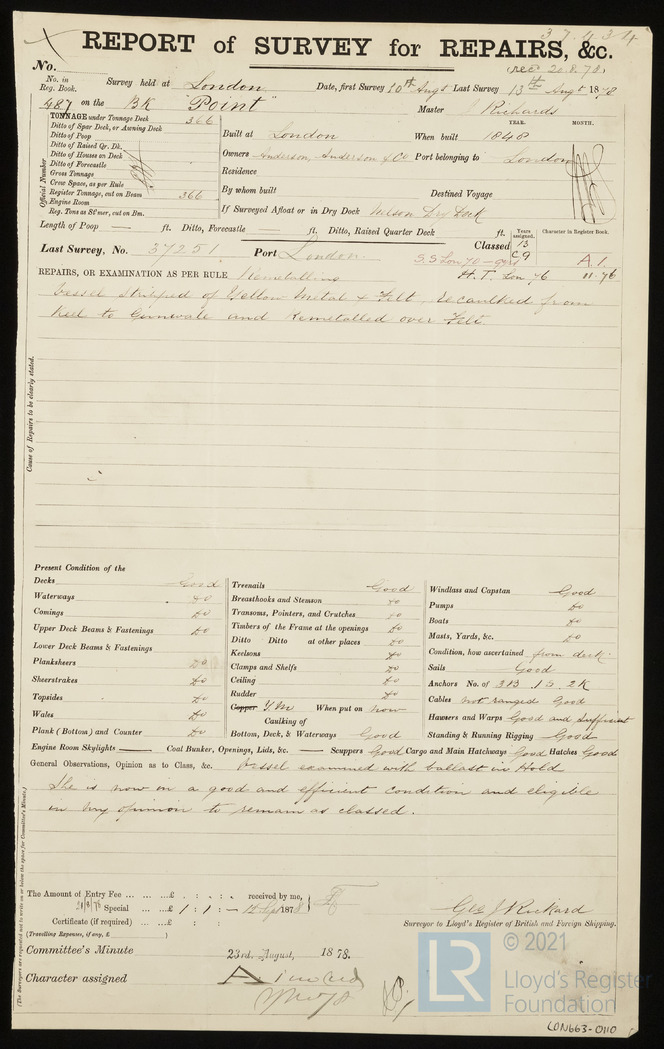 37434
REPORT of SURVEY for REPAIRS, &c.
No. (rec 20.8.78)
No. in Reg. Book. Survey held at London Date, first Survey 10th Augt Last Survey 13th Augt 1878
487 on the Bk "Point" Master J Rickards
TONNAGE under Tonnage Deck 366
Ditto of Spar Deck, or Awning Deck
Ditto of Poop
Ditto of Raised Qr. Dk.
Ditto of Houses on Deck
Ditto of Forecastle
Gross Tonnage
Crew Space, as per Rule
Register Tonnage, cut on Beam 366
Engine Room
Reg. Tons as St'mer, cut on Bm.
Official Number
YEAR. MONTH.
Built at London When built 1848
Owners Anderson, Anderson & Co Port belonging to London
Residence
By whom built Destined Voyage
If Surveyed Afloat or in Dry Dock Nelson Dry Dock
Length of Poop ft. Ditto, Forecastle ft. Ditto, Raised Quarter Deck ft.
Years assigned. Character in Register Book.
Last Survey, No. 37251 Port London. Classed 13
C 9 A.1.
S.S Lon 70 - 9yrs
REPAIRS, OR EXAMINATION AS PER RULE Remetalling H.T. Lon 76 11.76
Vessel stripped of Yellow Metal & Felt, recaulked from
keel to Gunwale and Remetalled over Felt.
Cause of Repairs to be clearly stated.
Present Condition of the
Decks Good
Waterways Do
Comings Do
Upper Deck Beams & Fastenings Do
Lower Deck Beams & Fastenings
Planksheers Do
Sheerstrakes Do
Topsides Do
Wales Do
Plank (Bottom) and Counter Do
Treenails Good
Breasthooks and Stemson Do
Transoms, Pointers, and Crutches Do
Timbers of the Frame at the openings Do
Ditto Ditto at other places Do
Keelsons Do
Clamps and Shelfs Do
Ceiling Do
Rudder Do
Copper Y.M When put on Now
Caulking of
Bottom, Deck, & Waterways Good
Windlass and Capstan Good
Pumps Do
Boats Do
Masts, Yards, &c. Do
Condition, how ascertained from deck.
Sails Good
Anchors No. of 3B 1S. 2K
Cables Not ranged Good
Hawsers and Warps Good and Sufficient
Standing & Running Rigging Good
Engine Room Skylights Coal Bunker, Openings, Lids, &c. Scuppers Good Cargo and Main Hatchways Good Hatches Good
General Observations, Opinion as to Class, &c. Vessel examined with ballast in Hold
She is now in a good and efficient condition and eligible
in my opinion to remain as classed.
(The Surveyors are requested not to write on or below the space for Committee's Minute.)
The Amount of Entry Fee ... £ : : received by me,
21/8/78 Special ... £ 1 : 1 : - 1878
Certificate (if required) ... £ : :
(Travelling Expenses, if any, £ )
Geo J Rickard
Surveyor to Lloyd's Register of British and Foreign Shipping.
Committee's Minute 23rd August, 1878.
Character assigned A 1
LR © 2021
Lloyd's Register
Foundation
LON663-0110